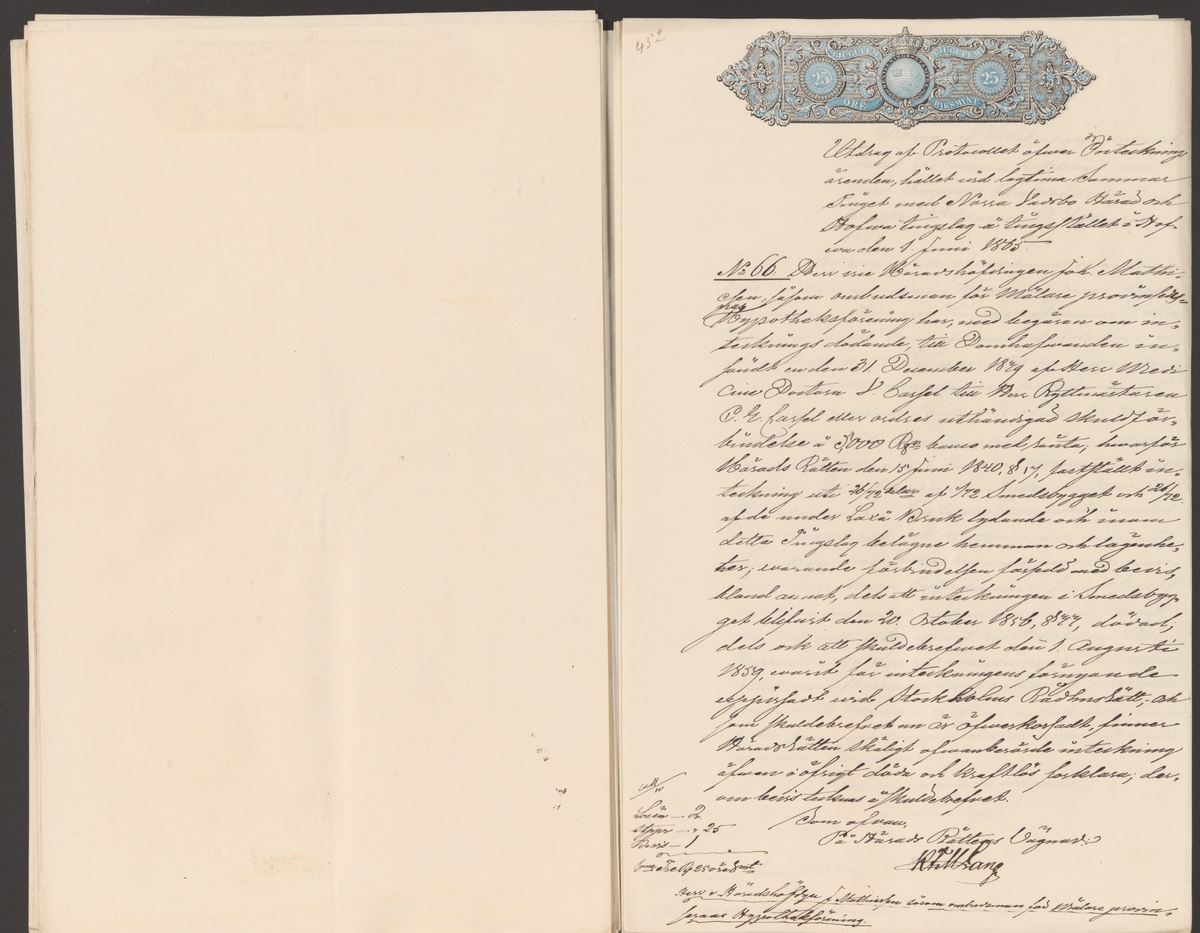 452
TJUGUFEM TJUGUFEM
25 25
ÖRE RIKSMYNT
Utdrag af Protocollet öfwer Intecknings
ärenden, hållet wid lagtima Sommar
Tinget med Norra Wadsbo Härad och
Hofwa tingslag å tingsstället i Hof-
wa den 1. Juni 1865.
No 66. Herr vice Häradshöfdingen Joh. Mathi-
esen, såsom ombudsman för Mälare provinsernas
Hypotheksförening har, med begäran om in-
tecknings dödande, till Domhafwanden in-
sändt en den 31. December 1839 af Herr Medi
cine Doctorn Cassel till Herr Ryttmästaren
C. E. Cassel eller ordres uthändigad skuldför-
bindelse å 5000 Rdr banco med ränta; hwarför
Härads Rätten den 15 Juni 1840, § 17, fastställt in-
teckning uti 26/72 delar af 1/72 Smedsbygget och 26/72
af de under Laxå Bruk lydande och inom
detta Tingslag belägne hemman och lägenhe-
ter; warande förbindelsen försedd med bevis,
bland annat, dels att inteckningen i Smedsbyg-
get blifwit den 20. October 1856, § 77, dödad,
dels ock att skuldebrefwet den 1. Augusti
1859, warit för inteckningens förnyande
uppvisadt wid Stockholms Rådhusrätt; och
som skuldebrefwet nu är öfwerkorsadt, finner
HäradsRätten skäligt ofwanberörde inteckning
äfwen i öfrigt död och kraftlös förklara; der-
om bevis tecknas å skuldebrefwet.
Som ofwan,
På Härads Rättens Wägnar:
Lösen — 2
Stpr — " 25
Bevis — 1
Herr v. Häradshöfdgn J. Mathiesen såsom ombudsman för Mälare provin-
sernas Hypotheksförening.